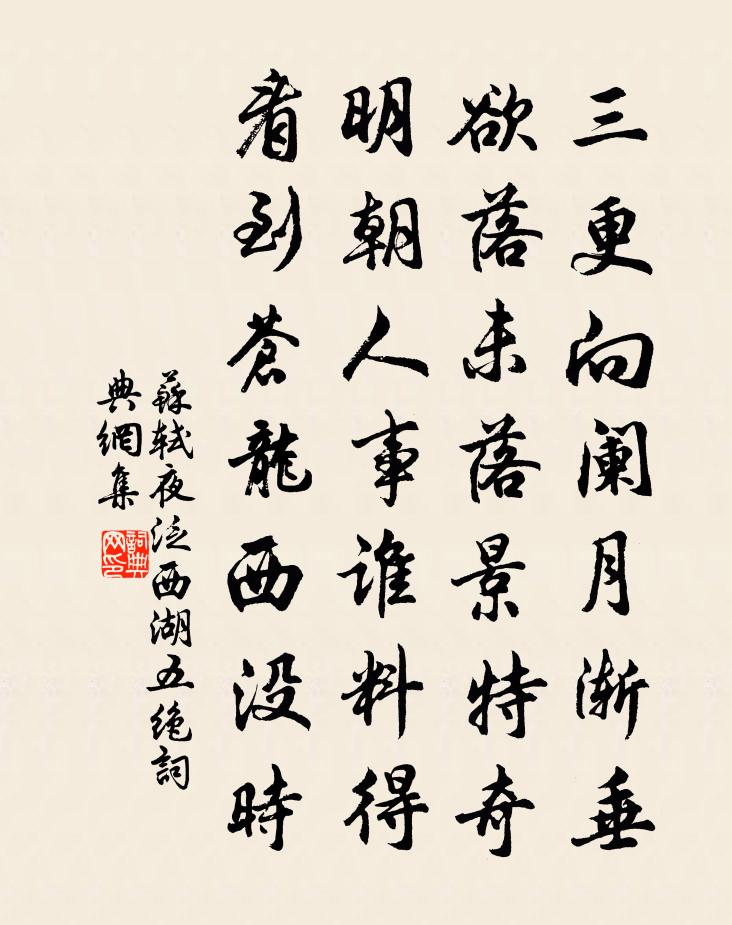 三更向阑月渐垂
欲落未落景特奇
明朝人事谁料得
看到苍龍西没時
蘇軾夜泛西湖五绝詞
典網集
詞典网印